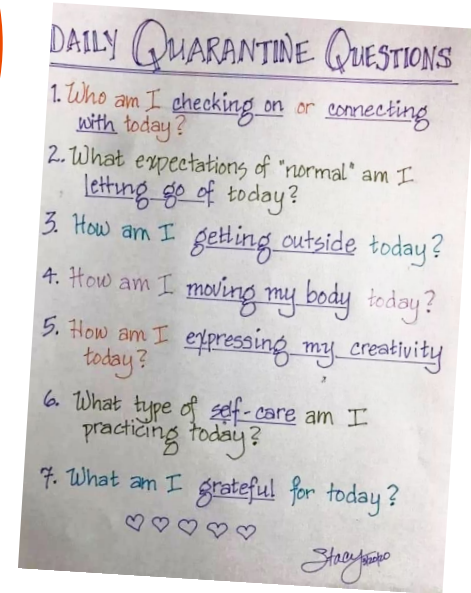 DAILY QUARANTINE QUESTIONS
1. Who am I checking on or connecting
with today?
2. What expectations of "normal" am I
letting go of today?
3. How am I getting outside today?
4. How am I moving my body today?
5. How am I expressing my creativity
today?
6. What type of self-care am I
practicing today?
7. What am I grateful for today?
♡ ♡ ♡ ♡ ♡
Stacy